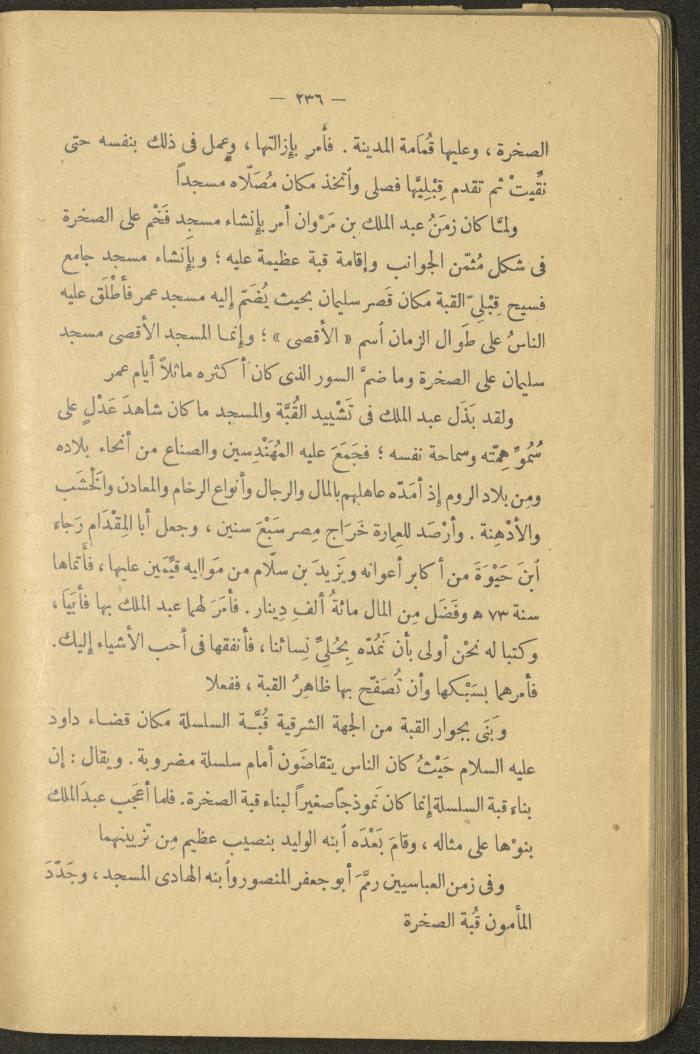 — ٢٣٦ —
الصخرة ، وعليها قُمَامة المدينة . فأمر بإزالتها ، وعمل فى ذلك بنفسه حتى
نقِّيتْ ثم تقدم قِبْلِيَّها فصلى وٱتخذ مكان مُصَلّاه مسجداً
ولمَّا كان زمَنُ عبد الملك بن مَرْوان أمر بإنشاء مسجد فَخْم على الصخرة
فى شكل مُثمّن الجوانب وإقامة قبة عظيمة عليه ؛ وبإنشاء مسجد جامع
فسيح قِبْلِىّ القبة مكان قَصر سليمان بحيث يُضَمّ إليه مسجد عمر فأطْلَق عليه
الناسُ على طَوَال الزمان ٱسم « الأقصى » ؛ وإنمـا المسجد الأقصى مسجد
سليمان على الصخرة وما ضمَّ السور الذى كان أكثره ماثلاً أيام عمر
ولقد بَذَل عبد الملك فى تَشْييد القُبَّة والمسجد ما كان شاهدَ عَدْلٍ على
سُمُوِّ هِمَّته وسماحة نفسه ؛ فجَمَعَ عليه المُهَنْدِسين والصناع من أنحاء بلاده
ومِن بلاد الروم إذ أمَدّه عاهلهم بالمال والرجال وأنواع الرخام والمعادن والْخَشَب
والأدْهِنة . وأرْصَد للعِمارة خَرَاج مِصر سَبْعَ سنين ، وجعل أبا المِقْدَام رَجاءَ
ٱبنَ حَيْوَةَ من أكابر أعوانه ويَزيدَ بن سلّام من مَوَاليه قيِّمَين عليها ، فأتماها
سنة ٧٣ ه وفَضَل مِن المال مائةُ ألفِ دِينار . فأمَرَ لهما عبد الملك بها فأبَيَا ،
وكتبا له نحْن أولى بأن نَمُدّه بِحُلِىِّ نِسائنا ، فأنفقها فى أحب الأشياء إليك .
فأمرهما بسَبْكها وأن تُصَفّح بها ظاهِرُ القبة ، ففعلا
وبَنَى بجوار القبة من الجهة الشرقية قُبَّـة السلسلة مكان قضـاء داود
عليه السلام حَيْثُ كان الناس يتقاضَون أمام سلسلة مضروبة . ويقال : إن
بناء قبة السلسلة إنما كان نَموذجاً صغيراً لبناء قبة الصخرة . فلما أعجَب عبدَ الملك
بنوْها على مثاله ، وقامَ بَعْدَه ٱبنه الوليد بنصيب عظيم مِن تزيينهما
وفى زمن العباسيين رمَّمَ أبو جعفر المنصور وٱبنه الهادى المسجد ، وجَدّدَ
المأمون قُبة الصخرة